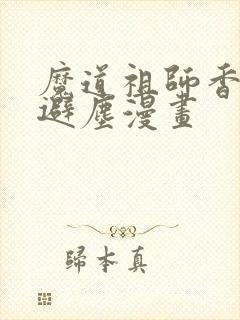 魔道祖師香
避塵漫畫
歸本真